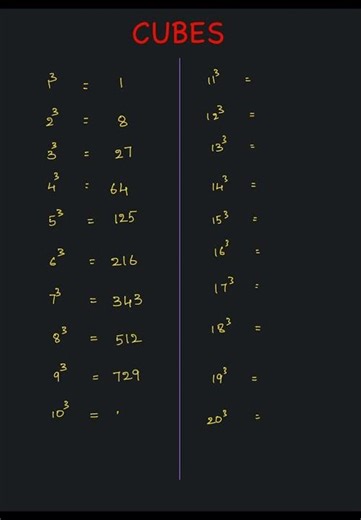 CUBES
1³ = 1
2³ = 8
3³ = 27
4³ = 64
5³ = 125
6³ = 216
7³ = 343
8³ = 512
9³ = 729
10³ = .
11³ =
12³ =
13³ =
14³ =
15³ =
16³ =
17³ =
18³ =
19³ =
20³ =